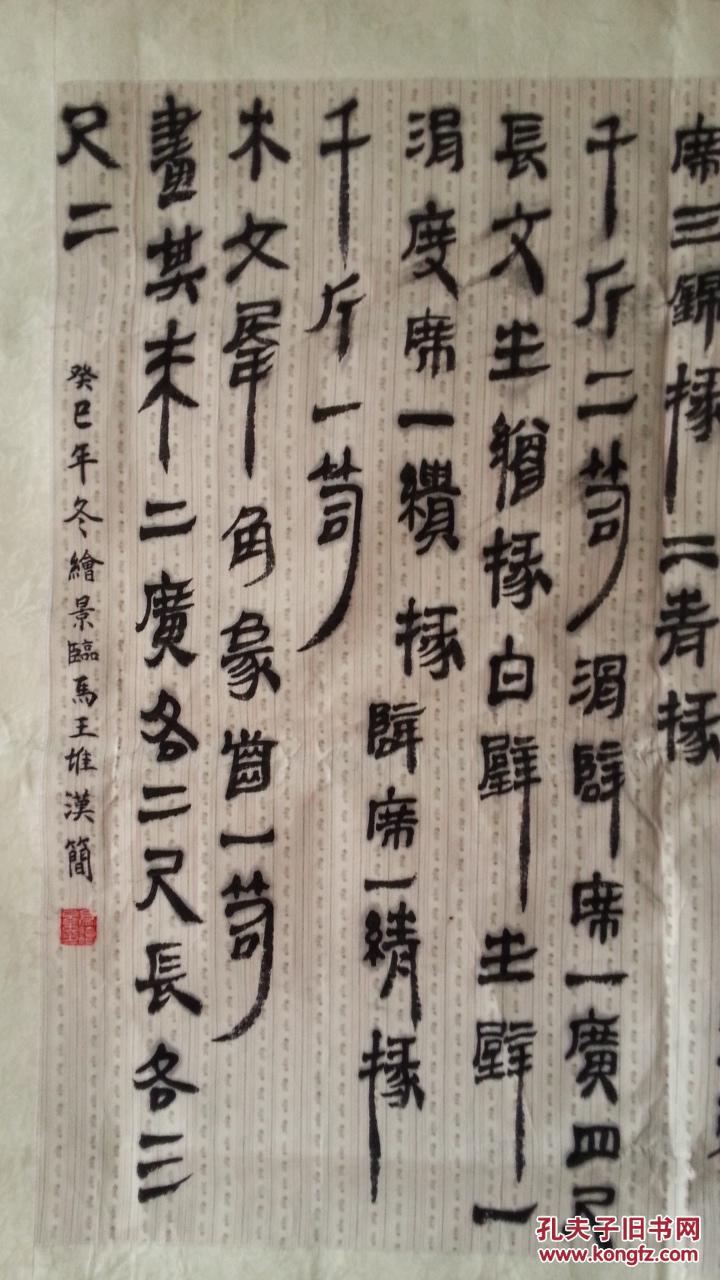 席三錦掾二青掾
千斤二笥滑辟席一廣四尺
長文坐繒掾白璧坐璧一
滑度席一繢掾辟席一綪掾
千斤一笥
木文犀角象齒一笥
畫其末二廣各二尺長各三
尺二
癸巳年冬繪景臨馬王堆漢簡
孔夫子旧书网
www.kongfz.com